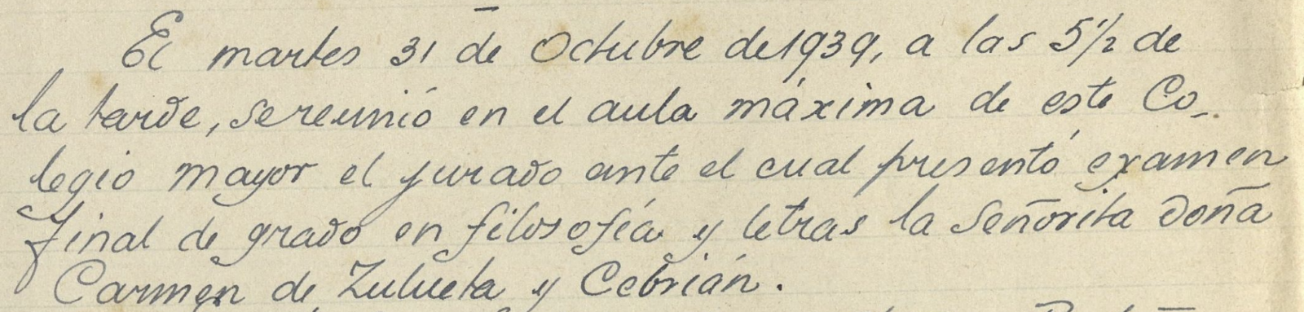 El martes 31 de Octubre de 1939, a las 5 1/2 de
la tarde, se reunió en el aula máxima de este Co-
legio mayor el jurado ante el cual presentó examen
final de grado en filosofía y letras la Señorita doña
Carmen de Zulueta y Cebrián.